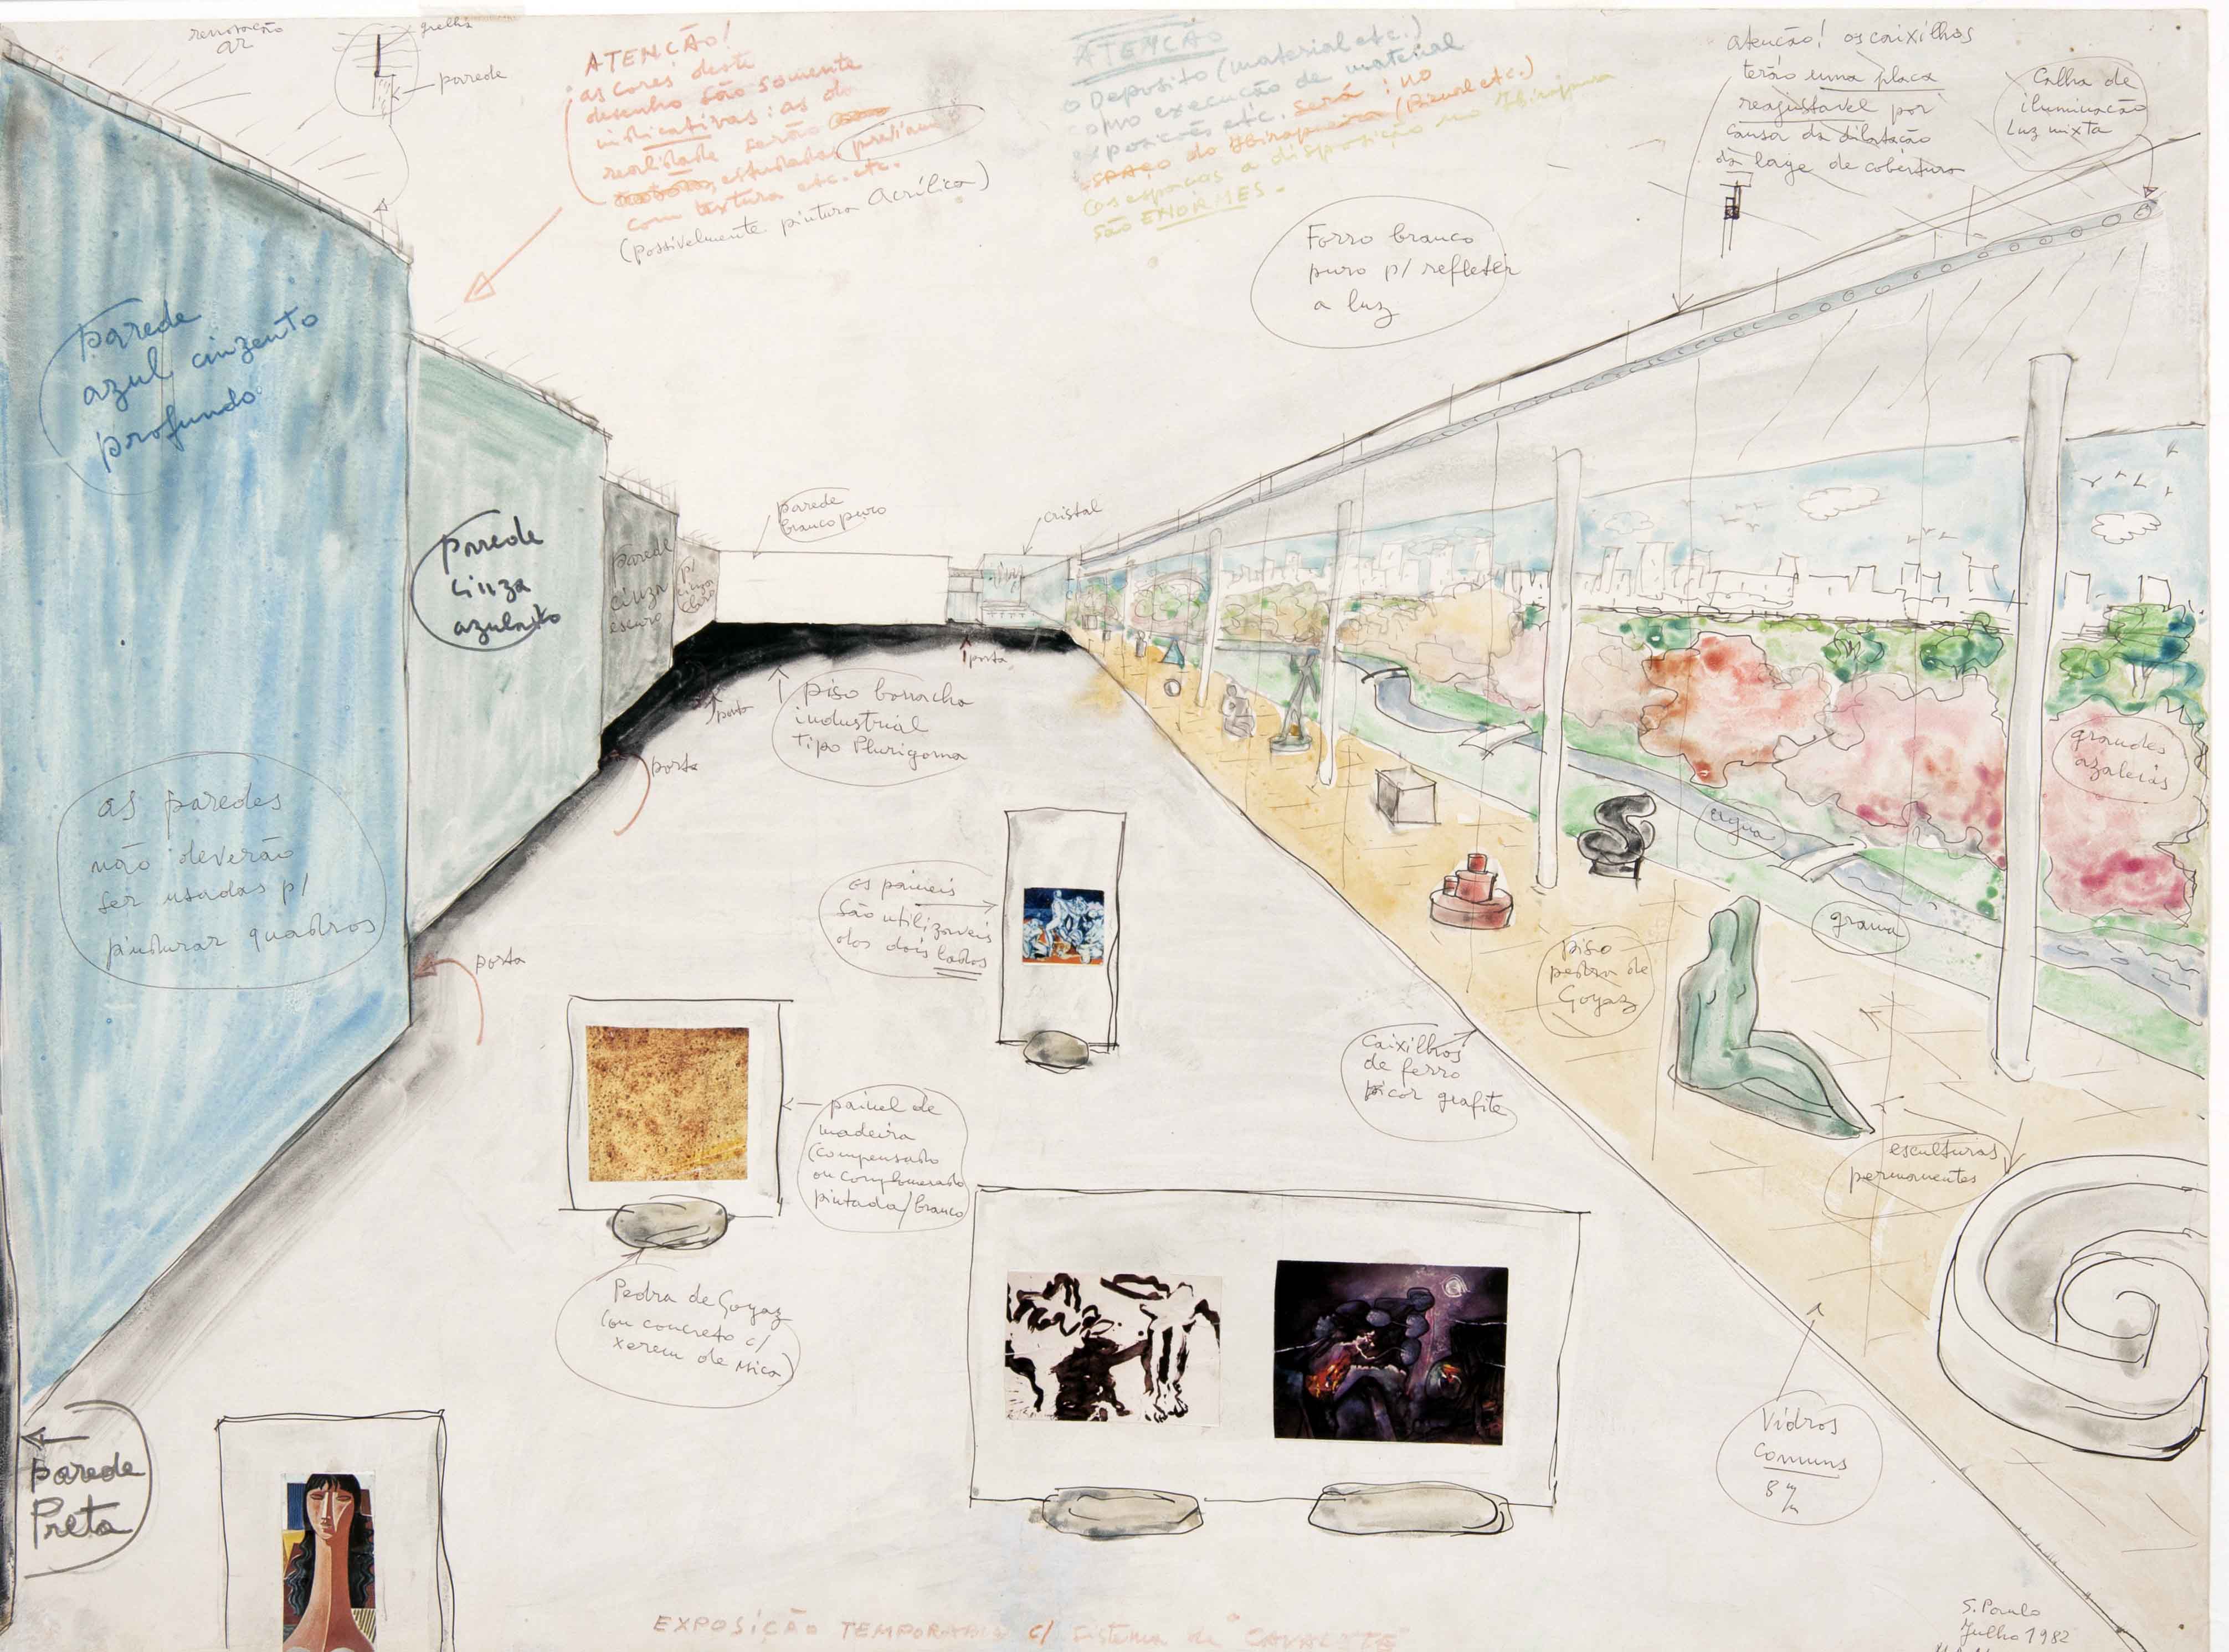 renovação
ar
grelha
parede
ATENCÃO!
as cores deste
desenho são somente
indicativas: as da
realidade serão
estudadas
com textura etc. etc.
(possivelmente pintura Acrílica)
ATENCAO
o Deposito (material etc.)
como execução de material
exposicões etc. será: no
ESPAÇO do Ibirapuera (Bienal etc.)
os espaços a disposição no Ibirapuera
são ENORMES -
Atenção! os caixilhos
terão uma placa
reajustavel por
causa da dilatação
da lage de cobertura
Calha de
iluminação
Luz mixta
Forro branco
puro p/ refleter
a luz
parede
azul cinzento
profundo
parede
cinza
azulado
parede
cinza
escuro
p/
cinza
claro
parede
branco puro
cristal
porta
porta
piso borracha
industrial
Tipo Plurigoma
porta
porta
as paredes
não deverão
ser usadas p/
pindurar quadros
os paineis
são utilizaveis
dos dois lados
painel de
madeira
(compensado
ou conglomerado
pintada/branco
Pedra de Goyaz
(ou concreto c/
xerem de Mica)
Caixilhos
de ferro
p/cor grafite
piso
pedra de
Goyaz
agua
grama
grandes
azaleias
esculturas
permanentes
Vidros
comuns
8 m/m
parede
Preta
EXPOSIÇÃO TEMPORARIA c/ sistema de "CAVALETE"
S. Paulo
Julho 1982